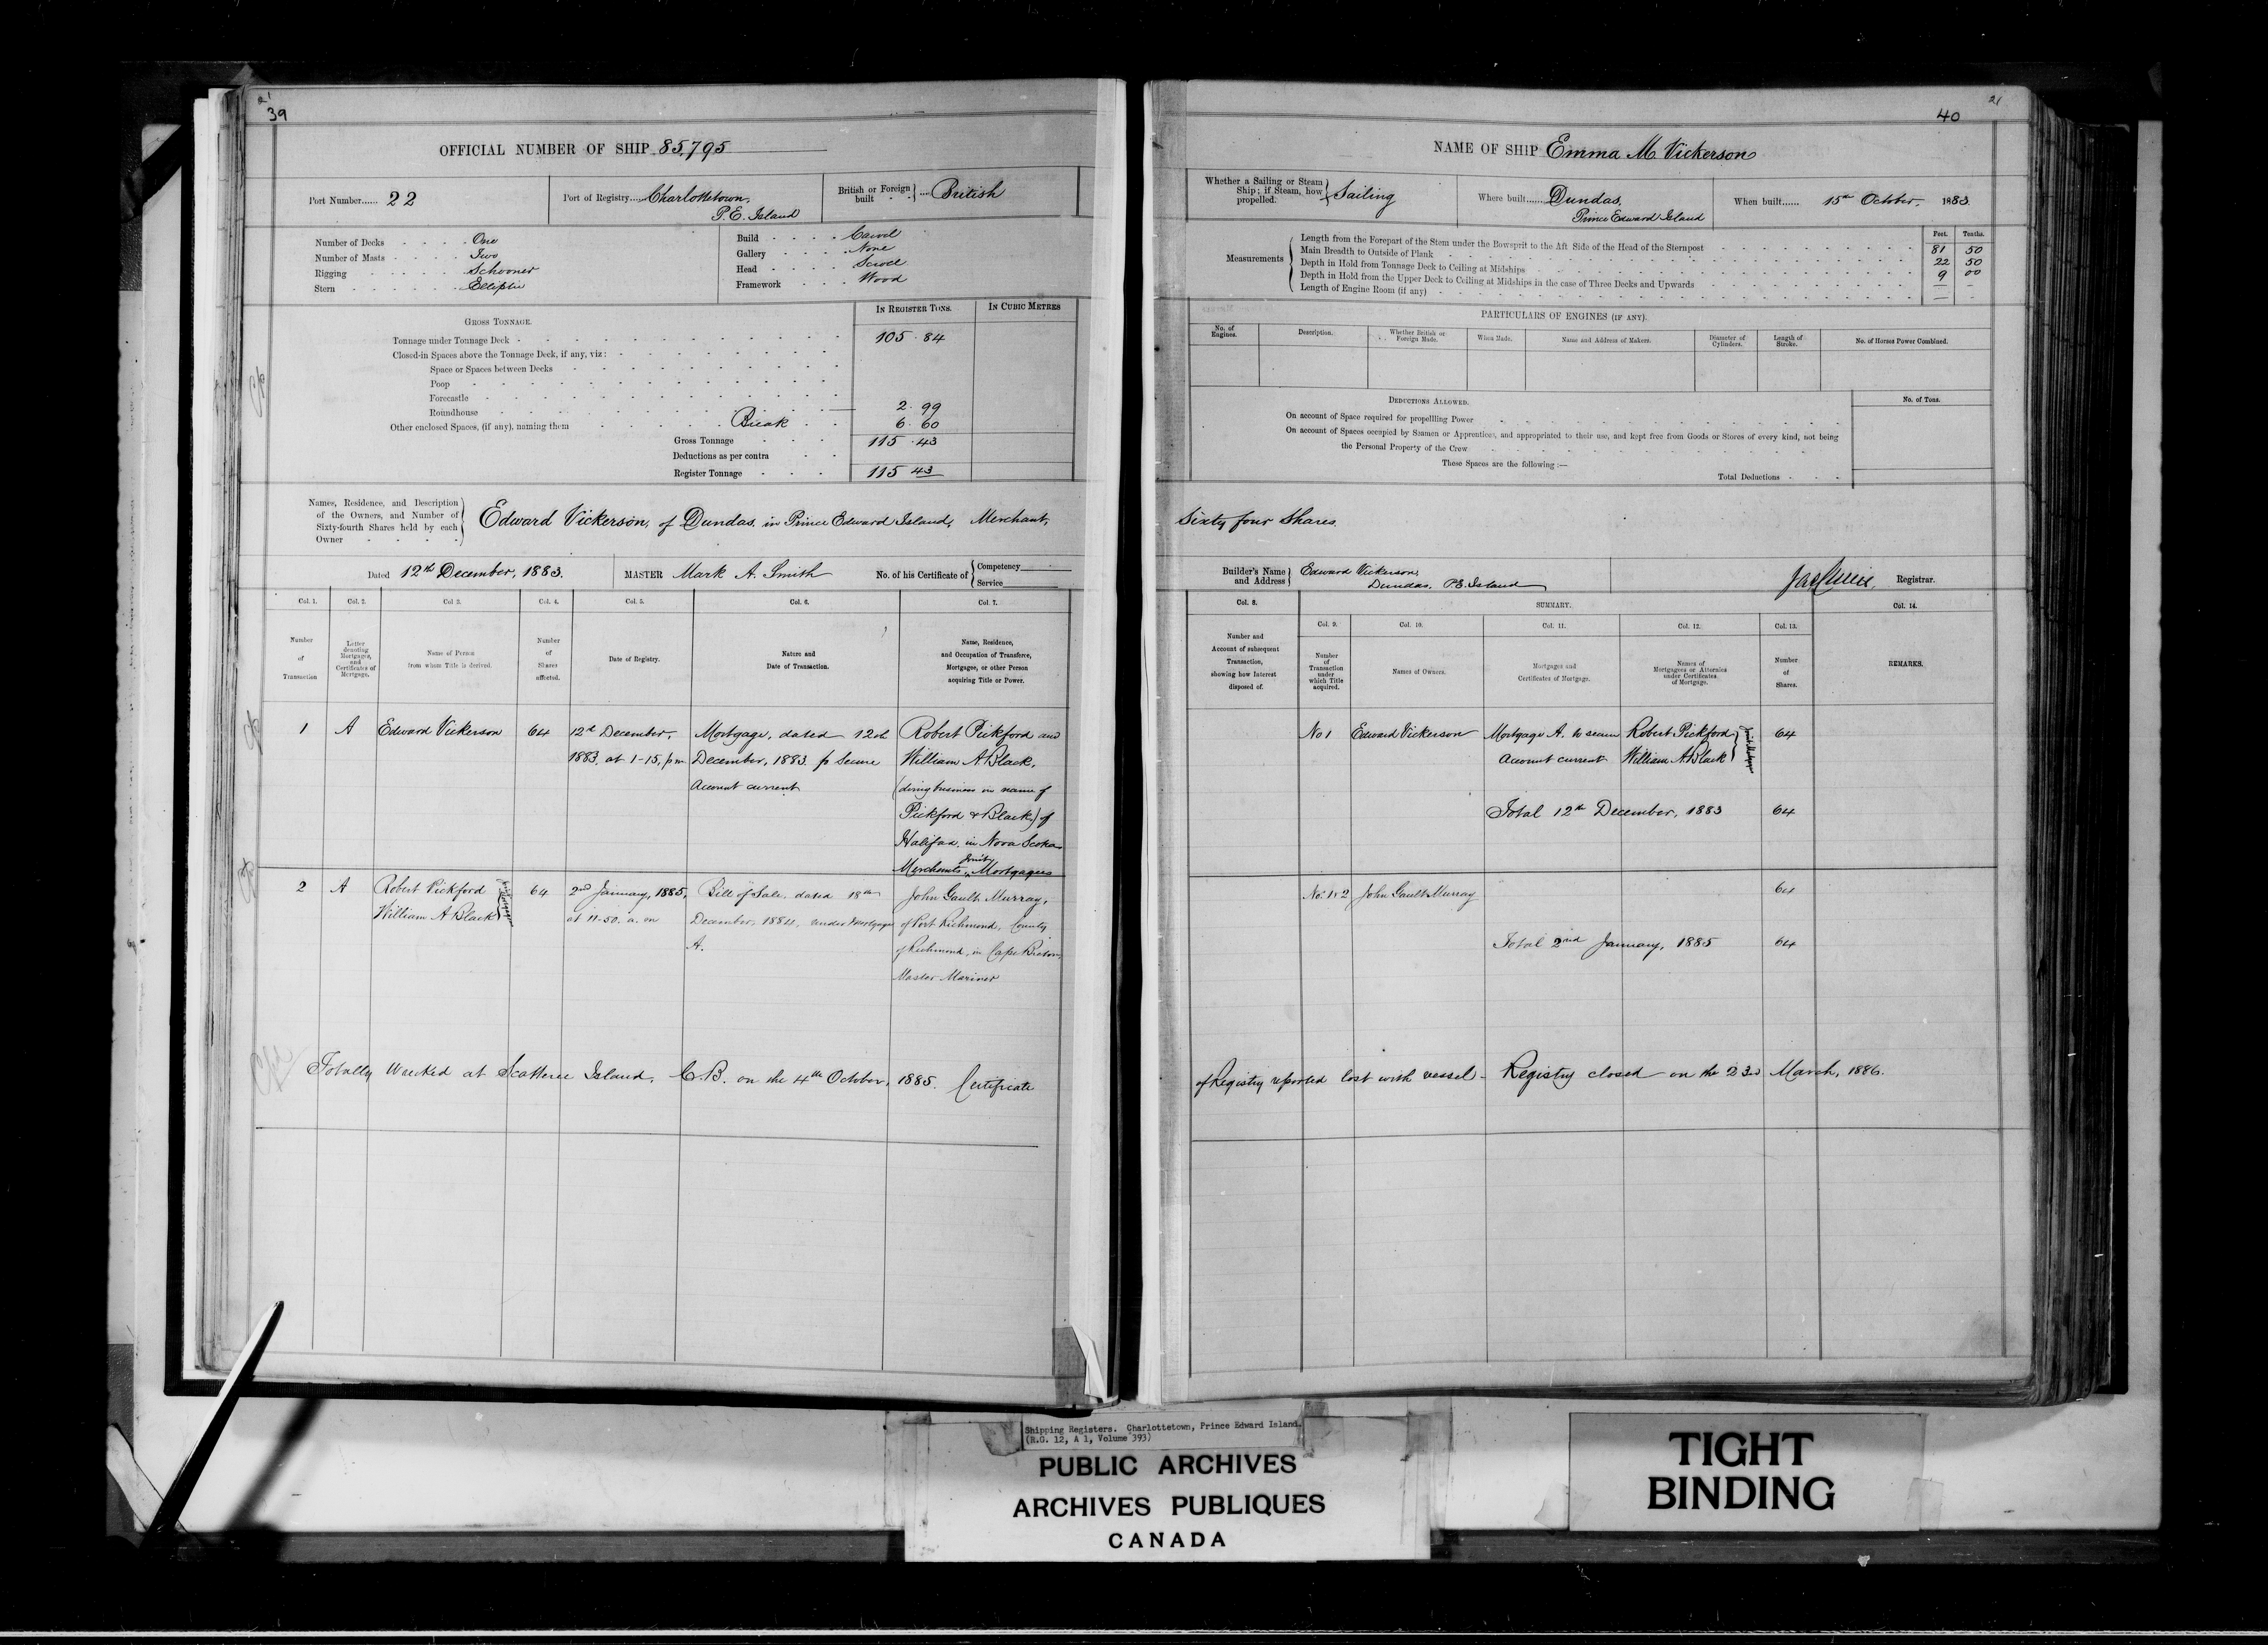 21
39
OFFICIAL NUMBER OF SHIP 85,795
Port Number...... 22
Port of Registry.... Charlottetown, P.E. Island
British or Foreign built .... British
Number of Decks One
Number of Masts Two
Rigging Schooner
Stern Elliptic
Build Carvel
Gallery None
Head Scroll
Framework Wood
GROSS TONNAGE.
IN REGISTER TONS.
IN CUBIC METRES
Tonnage under Tonnage Deck 105 . 84
Closed-in Spaces above the Tonnage Deck, if any, viz:
Space or Spaces between Decks
Poop
Forecastle
Roundhouse 2 . 99
Other enclosed Spaces, (if any), naming them Break 6 . 60
Gross Tonnage 115 . 43
Deductions as per contra
Register Tonnage 115 43
Names, Residence, and Description of the Owners, and Number of Sixty-fourth Shares held by each Owner
Edward Vickerson, of Dundas, in Prince Edward Island, Merchant,
Dated 12th December, 1883.
MASTER Mark A. Smith
No. of his Certificate of
Competency
Service
Col. 1. Col. 2. Col 3. Col. 4. Col. 5. Col. 6. Col. 7.
Number of Transaction
Letter denoting Mortgages, and Certificates of Mortgage.
Name of Person from whom Title is derived.
Number of Shares affected.
Date of Registry.
Nature and Date of Transaction.
Name, Residence, and Occupation of Transferee, Mortgagee, or other Person acquiring Title or Power.
1 A Edward Vickerson 64
12th December, 1883, at 1-15, pm
Mortgage, dated 12th
December, 1883 to secure
Account current
Robert Pickford and
William A. Black,
(doing business in name of
Pickford & Black) of
Halifax, in Nova Scotia
Merchants, Joint Mortgagees
2 A Robert Pickford
William A Black
Joint Mortgagees
64
2nd January, 1885,
at 11-50. a. m
Bill of Sale, dated 18th
December, 1884, under Mortgage
A.
John Gault Murray,
of Port Richmond, County
of Richmond, in Cape Breton,
Master Mariner
Totally wrecked at Scatterie Island, C.B. on the 4th October, 1885. Certificate
21
40
NAME OF SHIP Emma M. Vickerson
Whether a Sailing or Steam Ship; if Steam, how propelled. Sailing
Where built...... Dundas, Prince Edward Island
When built...... 15th October, 1883.
Measurements
Feet. Tenths.
Length from the Forepart of the Stem under the Bowsprit to the Aft Side of the Head of the Sternpost 81 50
Main Breadth to Outside of Plank 22 50
Depth in Hold from Tonnage Deck to Ceiling at Midships 9 00
Depth in Hold from the Upper Deck to Ceiling at Midships in the case of Three Decks and Upwards — -
Length of Engine Room (if any) — -
PARTICULARS OF ENGINES (IF ANY).
No. of Engines.
Description.
Whether British or Foreign Made.
When Made.
Name and Address of Makers.
Diameter of Cylinders.
Length of Stroke.
No. of Horses Power Combined.
DEDUCTIONS ALLOWED.
No. of Tons.
On account of Space required for propellling Power
On account of Spaces occupied by Seamen or Apprentices, and appropriated to their use, and kept free from Goods or Stores of every kind, not being
the Personal Property of the Crew
These Spaces are the following :—
Total Deductions
Sixty four Shares.
Builder's Name and Address
Edward Vickerson,
Dundas, P.E. Island
Registrar.
Col. 8.
SUMMARY.
Col. 14.
Col. 9. Col. 10. Col. 11. Col. 12. Col. 13.
Number and Account of subsequent Transaction, showing how Interest disposed of.
Number of Transaction under which Title acquired.
Names of Owners.
Mortgages and Certificates of Mortgage.
Names of Mortgagees or Attornies under Certificates of Mortgage.
Number of Shares.
REMARKS.
No 1 Edward Vickerson
Mortgage A. to secure
Account current
Robert Pickford
William A. Black
Joint Mortgagees
64
Total 12th December, 1883 64
No. 1 & 2 John Gault Murray 64
Total 2nd January, 1885 64
of Registry reported lost with vessel - Registry closed on the 23rd March, 1886.
Shipping Registers. Charlottetown, Prince Edward Island.
(R.G. 12, A 1, Volume 393)
PUBLIC ARCHIVES
ARCHIVES PUBLIQUES
CANADA
TIGHT
BINDING